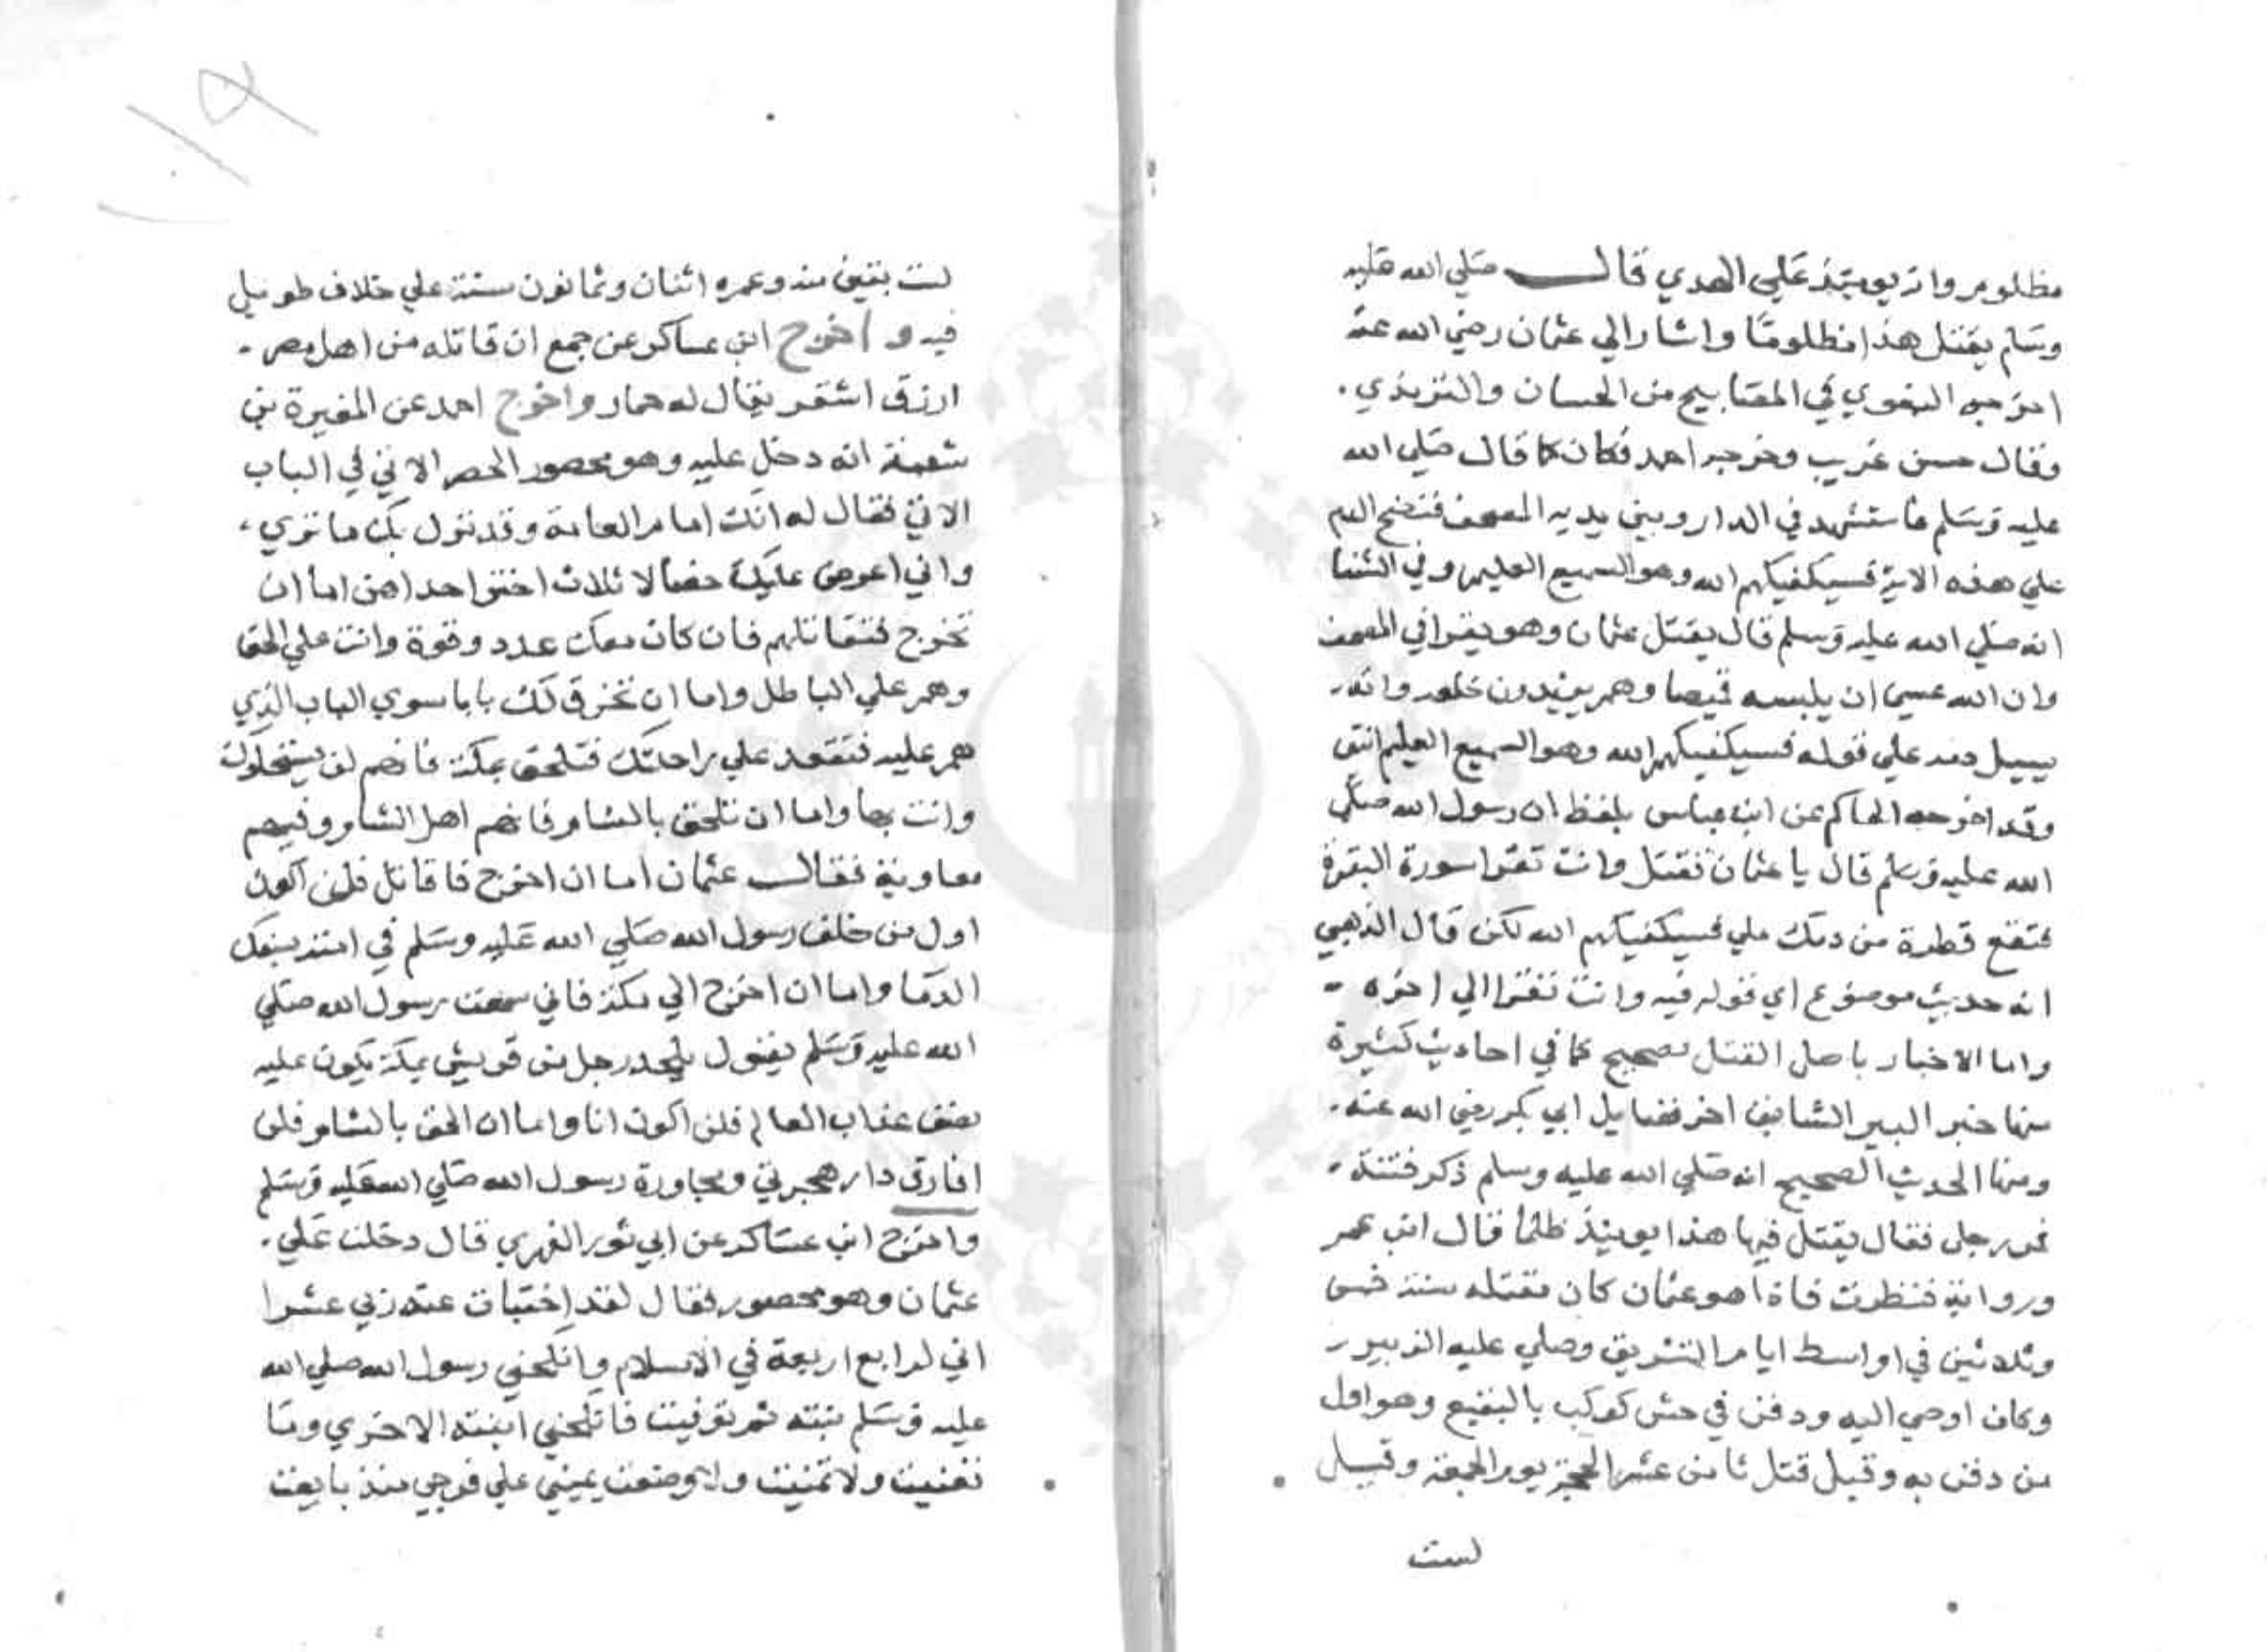 مظلوم وانه يومئذ علي الهدي قال صلي الله عليه
وسلم يقتل هذا مظلومًا واشار الي عثمان رضي الله عنه
اخرجه البغوي في المصابيح من الحسان والترمذي.
وقال حسن غريب وخرجه احمد فكان كما قال صلي الله
عليه وسلم فاستشهد في الدار وبين يديه المصحف فنضح الدم
علي هذه الاية فسيكفيكهم الله وهو السميع العليم وفي الشفا
انه صلي الله عليه وسلم قال يقتل عثمان وهو يقرا في المصحف
وان الله عسي ان يلبسه قميصا وهم يريدون خلعه وانه
يسيل دمه علي قوله فسيكفيكهم الله وهو السميع العليم انتهي
وقد اخرجه الحاكم عن ابن عباس بلفظ ان رسول الله صلي
الله عليه وسلم قال يا عثمان تقتل وانت تقرا سورة البقرة
فتقع قطرة من دمك علي فسيكفيكهم الله لكن قال الذهبي
انه حديث موضوع اي قوله فيه وانت تقرا الي اخره
واما الاخبار باصل القتل فصحيح كما في احاديث كثيرة
منها خبر البير السابق اخر فضايل ابي بكر رضي الله عنه.
ومنها الحديث الصحيح انه صلي الله عليه وسلم ذكر فتنة
فمر رجل فقال يقتل فيها هذا يومئذ ظلما قال ابن عمر
وراويه فنظرت فاذا هو عثمان كان مقتله سنة خمس
وثلاثين في اواسط ايام التشريق وصلي عليه الزبير
وكان اوصي اليه ودفن في حش كوكب بالبقيع وهو اول
من دفن به وقيل قتل ثامن عشر الحجة يوم الجمعة وقيل
لست
لست بقين منه وعمره اثنان وثمانون سنة علي خلاف طويل
فيه واخرج ابن عساكر عن جمع ان قاتله من اهل مصر
ازرق اشقر يقال له حمار واخرج احمد عن المغيرة بن
شعبة انه دخل عليه وهو محصور الحصر الاتي في الباب
الاتي فقال له انك امام العامة وقد نزل بك ما تري
واني اعرض عليك خصالا ثلاث اختر احداهن اما ان
تخرج فتقاتلهم فان كان معك عدد وقوة وانت علي الحق
وهم علي الباطل واما ان تخرق لك بابا سوي الباب الذي
هم عليه فتقعد علي راحلتك فتلحق بمكة فانهم لن يستحلوك
وانت بها واما ان تلحق بالشام فانهم اهل الشام وفيهم
معاوية فقال عثمان اما ان اخرج فاقاتل فلن اكون
اول من خلف رسول الله صلي الله عليه وسلم في امته بسفك
الدما واما ان اخرج الي مكة فاني سمعت رسول الله صلي
الله عليه وسلم يقول يلحد رجل من قريش بمكة يكون عليه
نصف عذاب العالم فلن اكون انا واما ان الحق بالشام فلن
افارق دار هجرتي ومجاورة رسول الله صلي الله عليه وسلم
واخرج ابن عساكر عن ابي ثور الفهري قال دخلت علي.
عثمان وهو محصور فقال لقد اختبات عند ربي عشرا
اني لرابع اربعة في الاسلام وانكحني رسول الله صلي الله
عليه وسلم بنته ثم توفيت فانكحني ابنته الاخري وما
تغنيت ولا تمنيت ولا وضعت يميني علي فرجي منذ بايعت